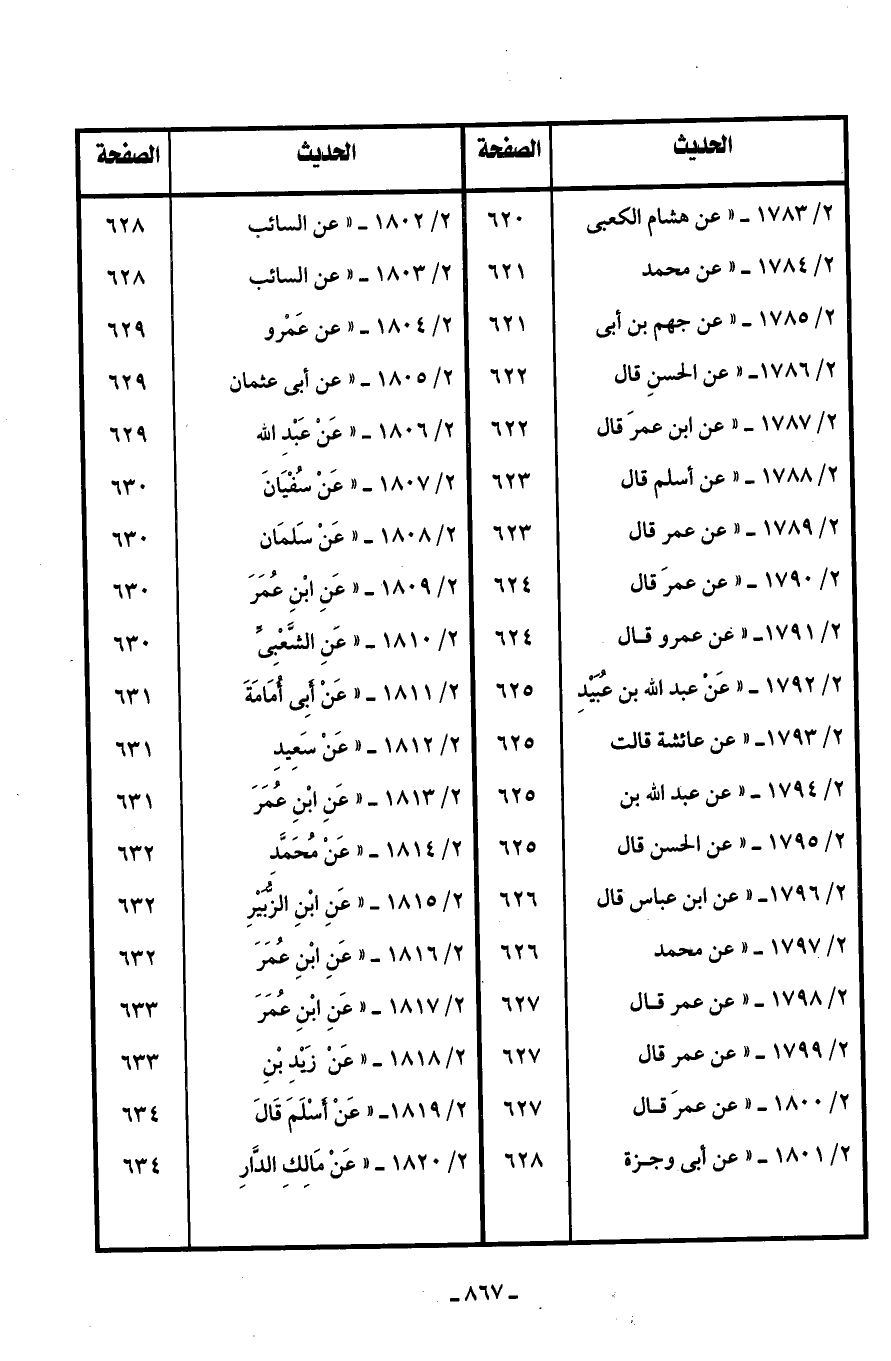 الحديث الصفحة الحديث الصفحة
٢/ ١٧٨٣ ـ « عن هشام الكعبى ٦٢٠ ٢/ ١٨٠٢ ـ « عن السائب ٦٢٨
٢/ ١٧٨٤ ـ « عن محمد ٦٢١ ٢/ ١٨٠٣ ـ « عن السائب ٦٢٨
٢/ ١٧٨٥ ـ « عن جهم بن أبى ٦٢١ ٢/ ١٨٠٤ ـ « عن عَمْرو ٦٢٩
٢/ ١٧٨٦ـ « عن الحسنِ قال ٦٢٢ ٢/ ١٨٠٥ ـ « عن أبى عثمان ٦٢٩
٢/ ١٧٨٧ ـ « عن ابن عمرَ قال ٦٢٢ ٢/ ١٨٠٦ ـ « عَنْ عَبْدِ الله ٦٢٩
٢/ ١٧٨٨ ـ « عن أسلم قال ٦٢٣ ٢/ ١٨٠٧ ـ « عَنْ سُفْيَانَ ٦٣٠
٢/ ١٧٨٩ ـ « عن عمر قال ٦٢٣ ٢/ ١٨٠٨ ـ « عَنْ سَلمَان ٦٣٠
٢/ ١٧٩٠ ـ « عن عمرَ قال ٦٢٤ ٢/ ١٨٠٩ ـ « عَنِ ابْنِ عُمَرَ ٦٣٠
٢/ ١٧٩١ـ « عن عمرو قـال ٦٢٤ ٢/ ١٨١٠ ـ « عَنِ الشَّعْبِىِّ ٦٣٠
٢/ ١٧٩٢ ـ « عَنْ عبد الله بن عُبَيْدِ ٦٢٥ ٢/ ١٨١١ ـ « عَنْ أَبِى أُمَامَةَ ٦٣١
٢/ ١٧٩٣ـ « عن عائشة قالت ٦٢٥ ٢/ ١٨١٢ ـ « عَنْ سَعِيدِ ٦٣١
٢/ ١٧٩٤ ـ « عن عبد الله بن ٦٢٥ ٢/ ١٨١٣ ـ « عَنِ ابْنِ عُمَرَ ٦٣١
٢/ ١٧٩٥ ـ « عن الحسن قال ٦٢٥ ٢/ ١٨١٤ ـ « عَنْ مُحَمَّدِ ٦٣٢
٢/ ١٧٩٦ـ « عن ابن عباس قال ٦٢٦ ٢/ ١٨١٥ ـ « عَنِ ابْنِ الزُّبَيْرِ ٦٣٢
٢/ ١٧٩٧ ـ « عن محمد ٦٢٦ ٢/ ١٨١٦ ـ « عَنِ ابْنِ عُمَرَ ٦٣٢
٢/ ١٧٩٨ ـ « عن عمر قـال ٦٢٧ ٢/ ١٨١٧ ـ « عَنِ ابْنِ عُمَرَ ٦٣٣
٢/ ١٧٩٩ ـ « عن عمر قال ٦٢٧ ٢/ ١٨١٨ ـ « عَنْ زَيْدِ بْنِ ٦٣٣
٢/ ١٨٠٠ ـ « عن عمرَ قـال ٦٢٧ ٢/ ١٨١٩ـ « عَنْ أَسْلَمَ قَالَ ٦٣٤
٢/ ١٨٠١ ـ « عن أبى وجـزة ٦٢٨ ٢/ ١٨٢٠ ـ « عَنْ مَالِكِ الدَّارِ ٦٣٤
ـ ٨٦٧ ـ